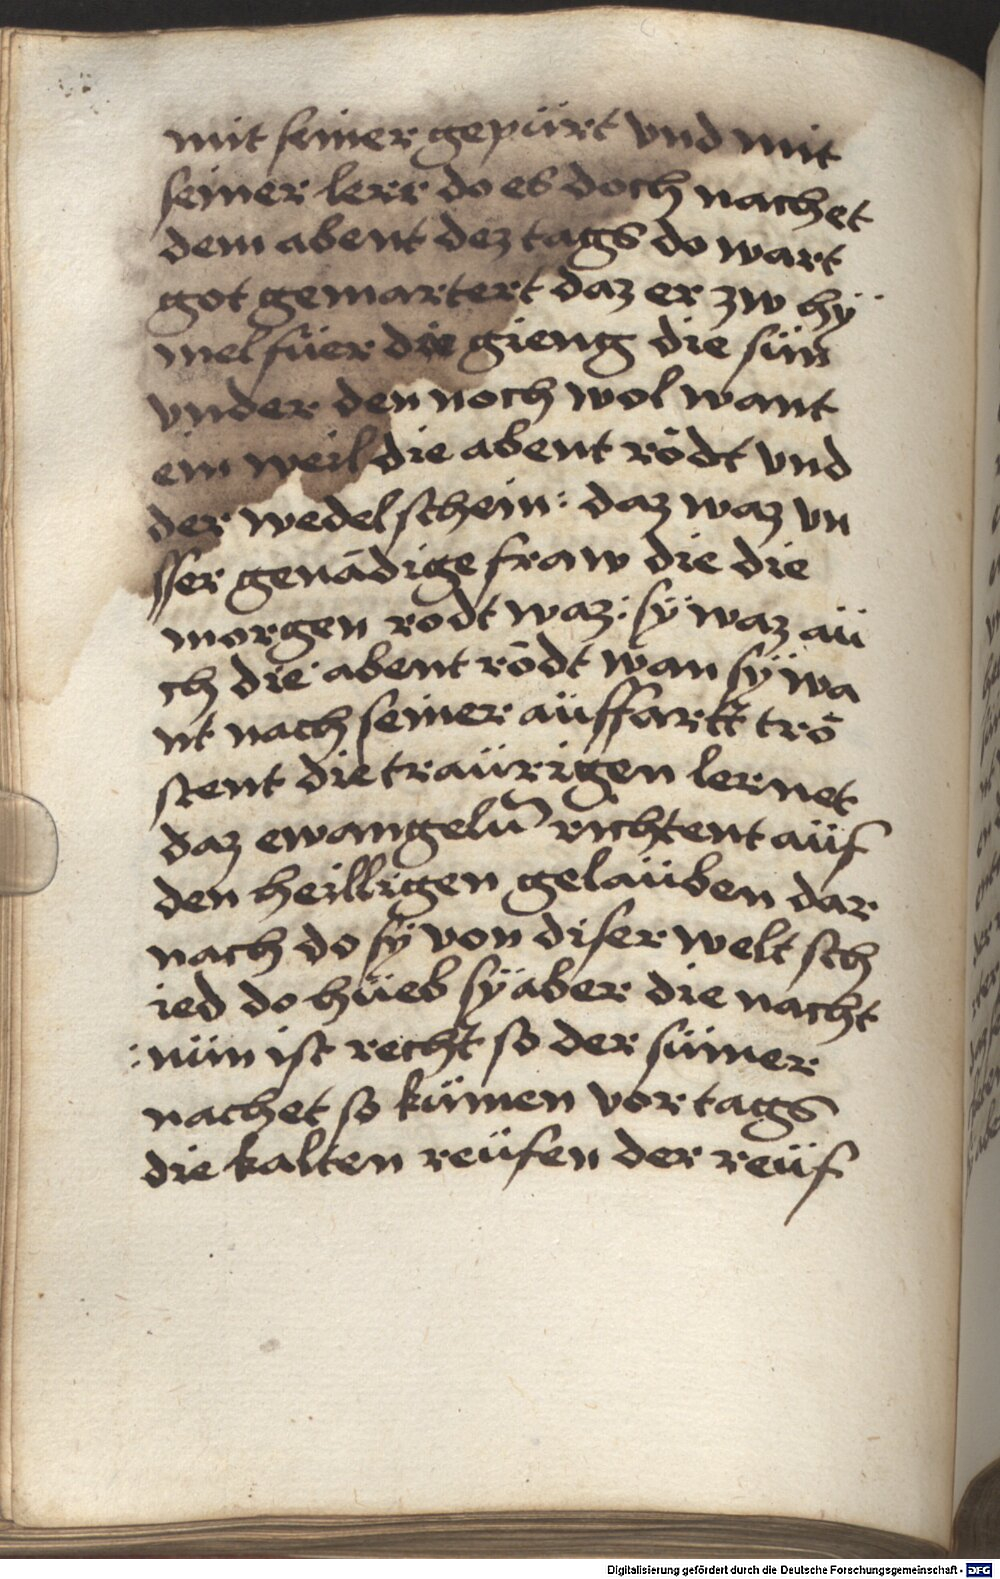 mit seiner gepürt vnd mit
seiner lerr do es doch nachet
dem abent dez tags do wart
got gemartert daz er zw hÿ
mel füer die gieng die sün
vnder dennoch wol want
ein weil die abent rödt vnd
der wedelschein : daz waz vn
sser genädige fraw die die
morgen rodt waz : sÿ waz aü
ch die abent rödt wan sÿ wa
nt nach seiner aüffartt trö
stent die traürigen lernet
daz ewangelū richtent aüf
den heilligen gelaüben dar
nach do sÿ von diser welt sch
ied do hüeb sÿ aber die nacht
: nün ist recht so der sümer
nachet so kümen vor tags
die kalten reüfen der reüf
Digitalisierung gefördert durch die Deutsche Forschungsgemeinschaft - DFG